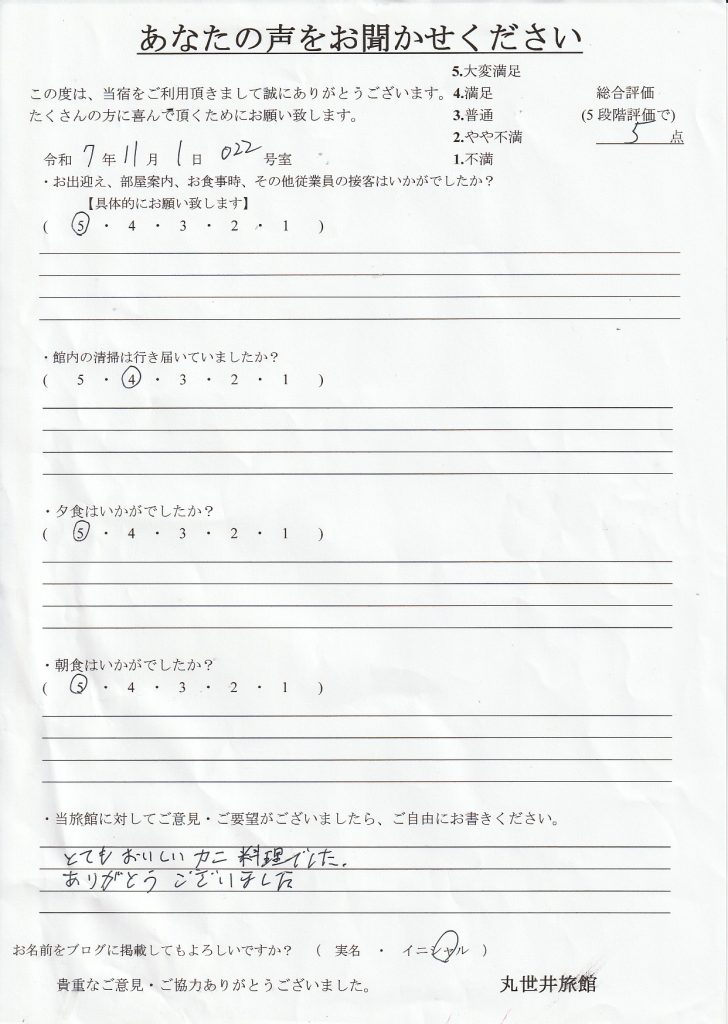 あなたの声をお聞かせください
5.大変満足
この度は、当宿をご利用頂きまして誠にありがとうございます。 4.満足 総合評価
たくさんの方に喜んで頂くためにお願い致します。 3.普通 (5段階評価で)
2.やや不満 5 点
令和 7 年 11 月 1 日 022 号室 1.不満
・お出迎え、部屋案内、お食事時、その他従業員の接客はいかがでしたか？
【具体的にお願い致します】
( 5 ・ 4 ・ 3 ・ 2 ・ 1 )
・館内の清掃は行き届いていましたか？
( 5 ・ 4 ・ 3 ・ 2 ・ 1 )
・夕食はいかがでしたか？
( 5 ・ 4 ・ 3 ・ 2 ・ 1 )
・朝食はいかがでしたか？
( 5 ・ 4 ・ 3 ・ 2 ・ 1 )
・当旅館に対してご意見・ご要望がございましたら、ご自由にお書きください。
とてもおいしいカニ料理でした。
ありがとうございました
お名前をブログに掲載してもよろしいですか？ （ 実名 ・ イニシャル ）
貴重なご意見・ご協力ありがとうございました。 丸世井旅館